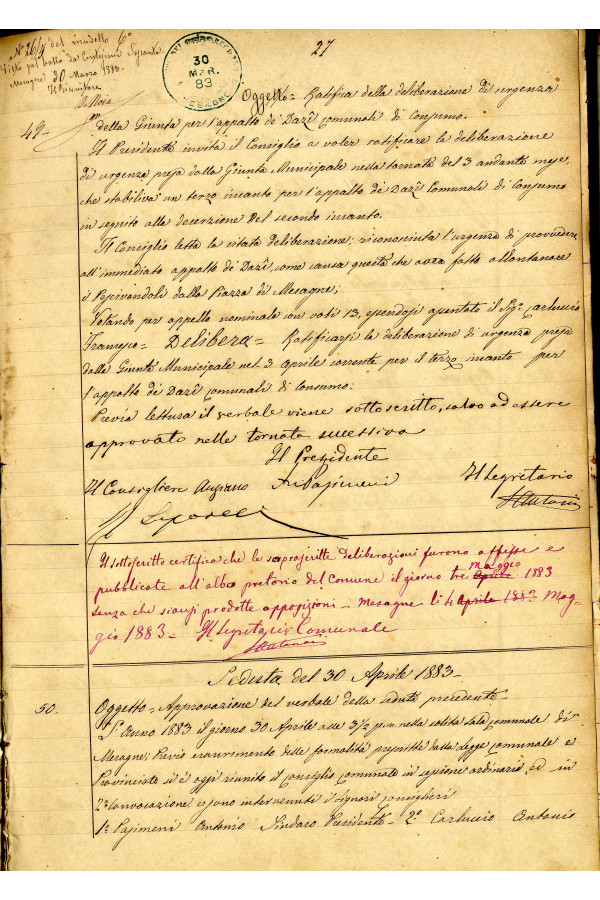 27
N° 26/4 del modello 6°
Visto pel bollo da Centesimi Sessanta
Mesagne 30 Marzo 1883
Il Ricevitore
30
MAR.
83
49 - Oggetto = Ratifica della deliberazione di urgenza
della Giunta per l'appalto de' Dazî comunali di Consumo.
Il Presidente invita il Consiglio a voler ratificare la deliberazione
di urgenza presa dalla Giunta Municipale nella tornata del 3 andante mese,
che stabiliva un terzo incanto per l'appalto de' Dazî Comunali di Consumo
in seguito alla deserzione del secondo incanto.
Il Consiglio letta la citata deliberazione; riconosciuta l'urgenza di provvedere
all'immediato appalto de' Dazî, come causa questa che avea fatto allontanare
i Pescivendoli dalla Piazza di Mesagne;
Votando per appello nominale con voti 13, essendosi the il Sigr. Carluccio
Francesco = Delibera = Ratificarsi la deliberazione di urgenza presa
dalla Giunta Municipale nel 3 Aprile corrente per il terzo incanto per
l'appalto de' Dazî comunali di Consumo.
Previa lettura il verbale viene sottoscritto, salvo ad essere
approvato nelle tornata successiva
Il Presidente
Il Consigliere Anziano Il Segretario
Il sottoscritto certifica che le soprascritte deliberazioni furono affisse e
pubblicate all'albo pretorio del Comune il giorno tre aprile maggio 1883
senza che siansi prodotte opposizioni - Mesagne li 4 Aprile 1883 Mag-
gio 1883 - Il Segretario Comunale
Seduta del 30 Aprile 1883 -
50. Oggetto = Approvazione del verbale della seduta precedente -
L'Anno 1883 il giorno 30 Aprile alle 3½ p.m. nella solita sala comunale di
Mesagne; Previo esaurimento delle formalità prescritte dalla legge comunale e
Provinciale si è oggi riunito il consiglio comunale in sessione ordinaria, ed in
2a Convocazione e sono intervenuti i Signori Consiglieri
1° Pasimeni Antonio Sindaco Presidente - 2° Carluccio Antonio